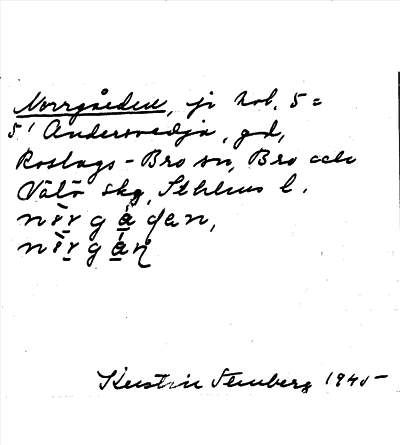 Norrgården, jr hol. 5=
5' Andersvedja, gd,
Roslags-Bro sn, Bro och
Vätö skg, Sthlms l.
Kerstin Stenberg 194